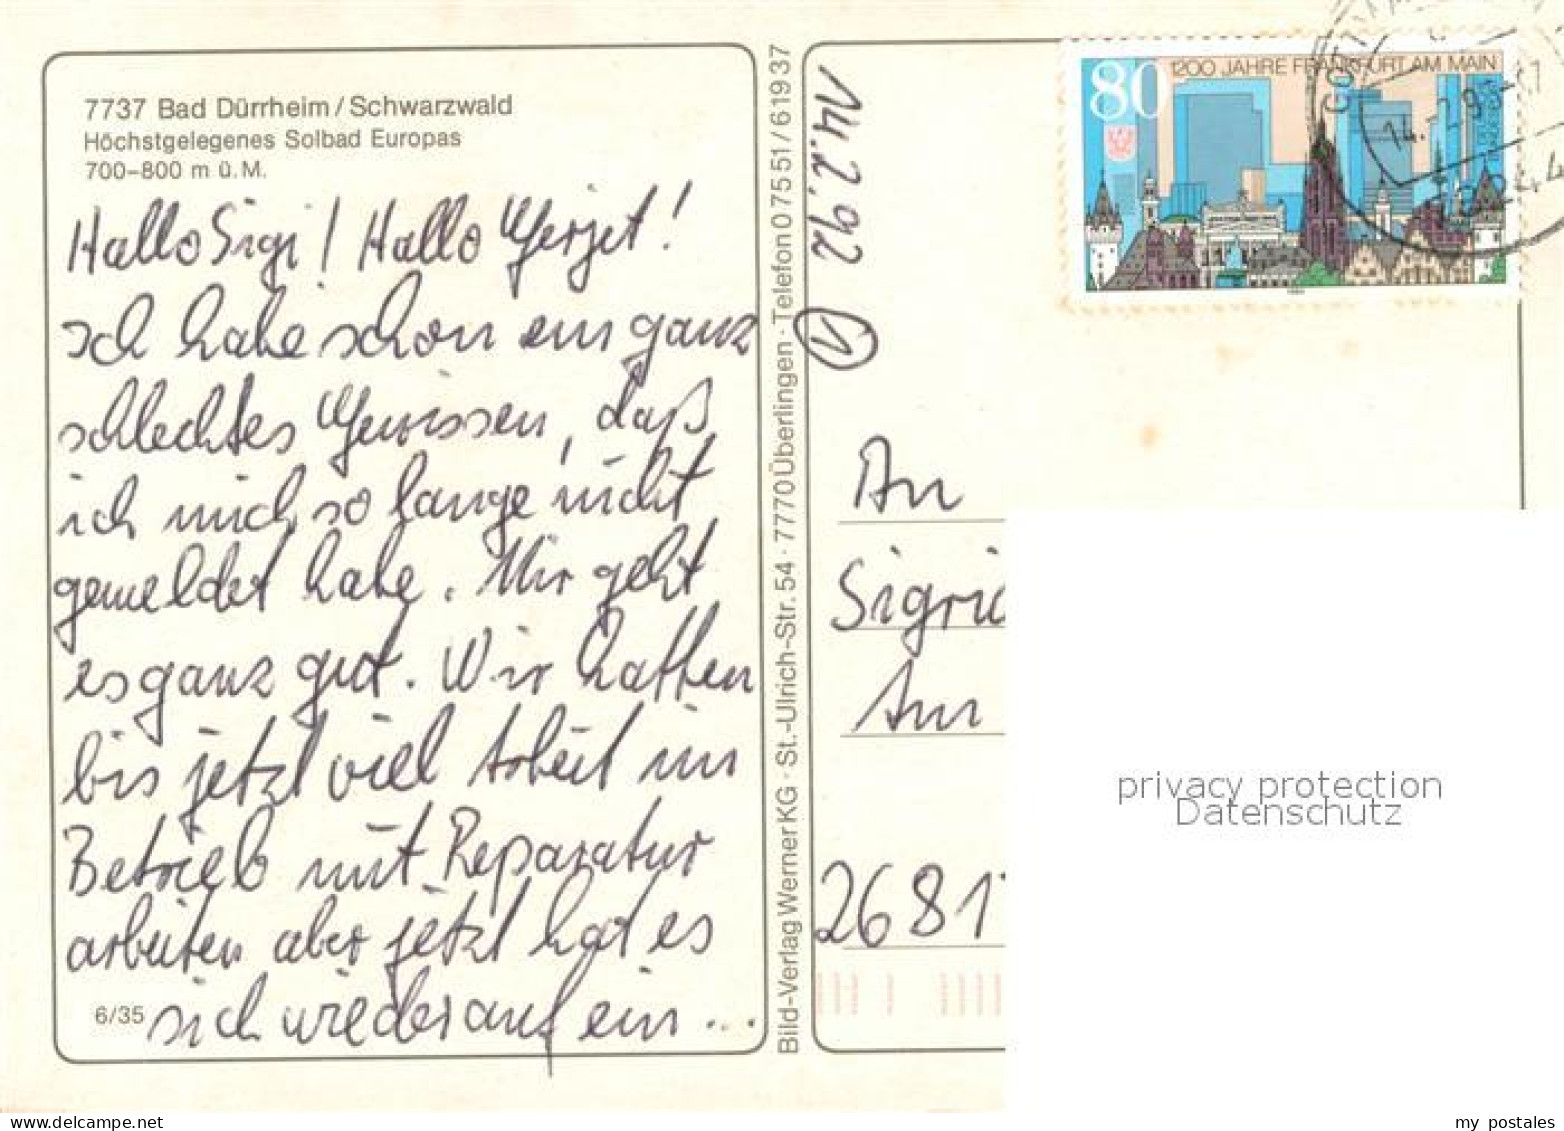 7737 Bad Dürrheim/Schwarzwald
Höchstgelegenes Solbad Europas
700–800 m ü.M.
Hallo Sigi! Hallo Gerjet!
Ich habe schon ein ganz
schlechtes Gewissen, daß
ich mich so lange nicht
gemeldet habe. Mir geht
es ganz gut. Wir hatten
bis jetzt viel Arbeit im
Betrieb mit Reparatur
arbeiten aber jetzt hat es
sich wieder auf ein...
6/35
Bild-Verlag Werner KG · St.-Ulrich-Str. 54 · 7770 Überlingen · Telefon 07551/61937
14.2.92
1
80
1200 JAHRE FRANKFURT AM MAIN
An
Sigrid
Am
2681
privacy protection
Datenschutz
my postales